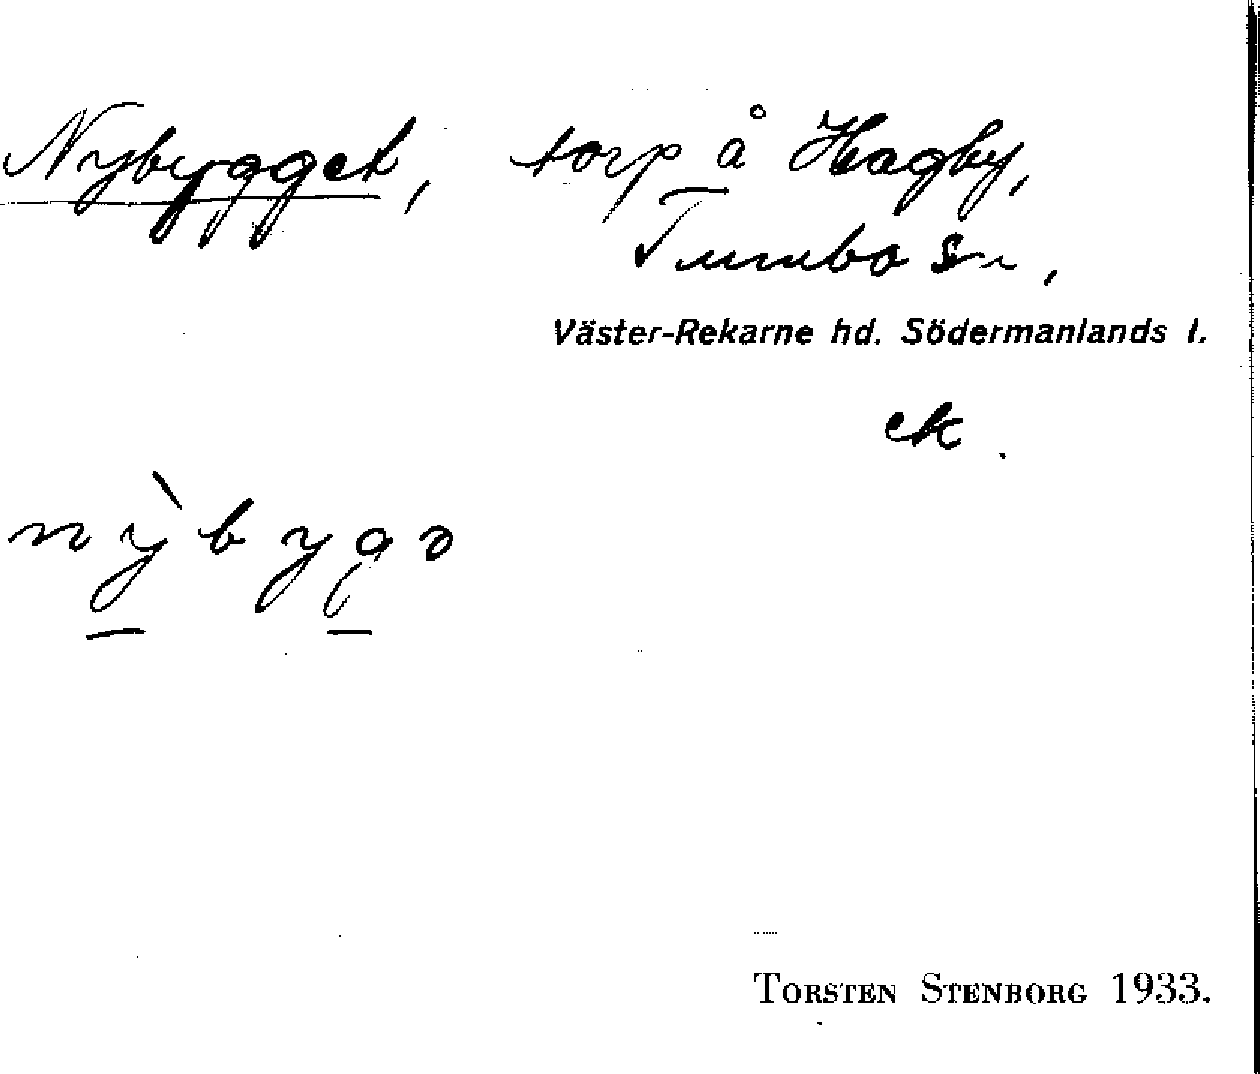 Nybygget, torp å Hagby,
Tumbo sn,
Väster-Rekarne hd. Södermanlands l.
ek.
nỳbygə
TORSTEN STENBORG 1933.